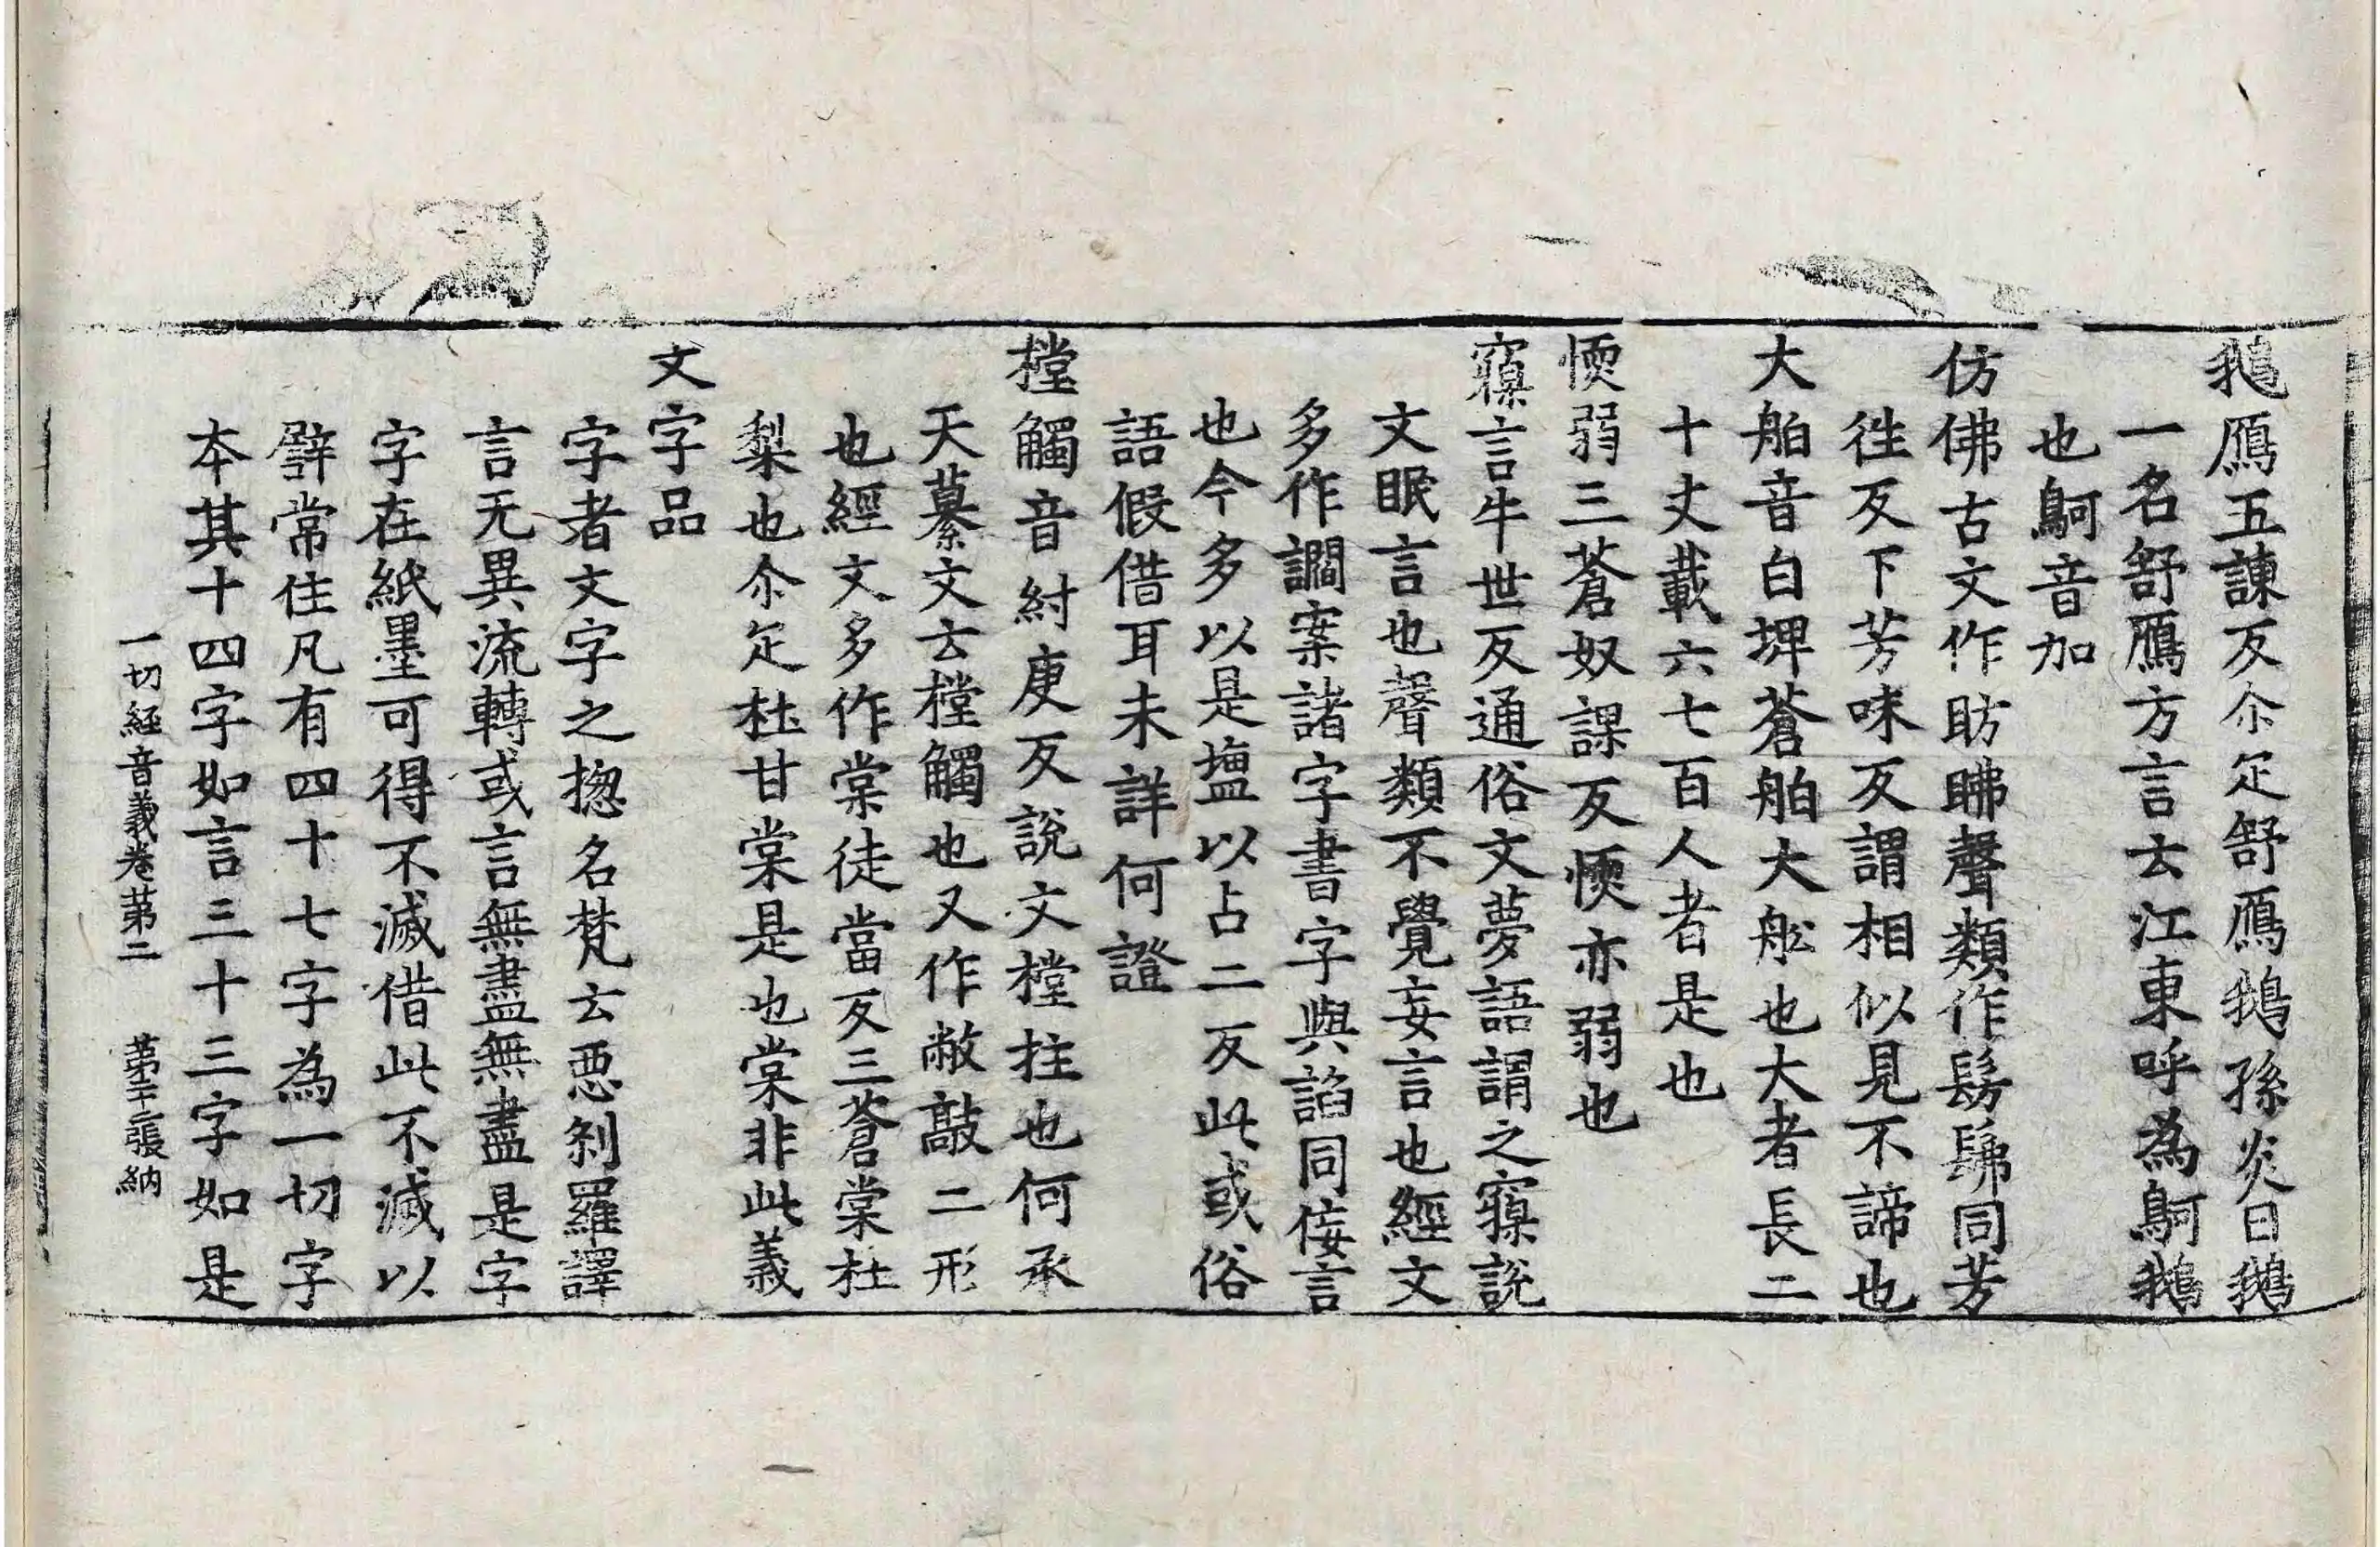 鵝鴈五諫反尒疋舒鴈鵝孫炎曰鵝
一名舒鴈方言云江東呼為鴚鵝
也鴚音加
仿佛古文作昉䀟聲類作髣髴同芳
往反下芳味反謂相似見不諦也
大舶音白埤蒼舶大舩也大者長二
十丈載六七百人者是也
愞弱三蒼奴課反愞亦弱也
寱言牛世反通俗文夢語謂之寱說
文眠言也聲類不覺妄言也經文
多作讇案諸字書字與諂同佞言
也今多以是壛以占二反此或俗
語假借耳未詳何證
樘觸音紂庚反說文樘拄也何承
天纂文云樘觸也又作敝敲二形
也經文多作棠徒當反三蒼棠杜
梨也尒疋杜甘棠是也棠非此義
文字品
字者文字之揔名梵云惡剎羅譯
言无異流轉或言無盡無盡是字
字在紙墨可得不滅借此不滅以
譬常住凡有四十七字為一切字
本其十四字如言三十三字如是
一切經音義卷苐二 苐二十張納